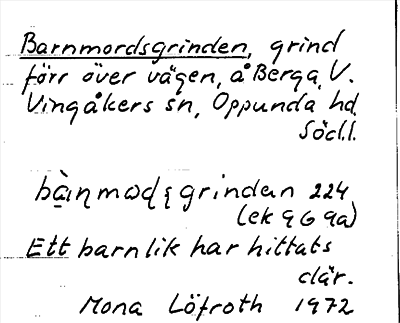 Barnmordsgrinden, grind
förr över vägen, å Berga, V.
Vingåkers sn, Oppunda hd.
Södl.
grindan 224
(ek
Ett barnlik har hittats
där.
Mona Löfroth 1972